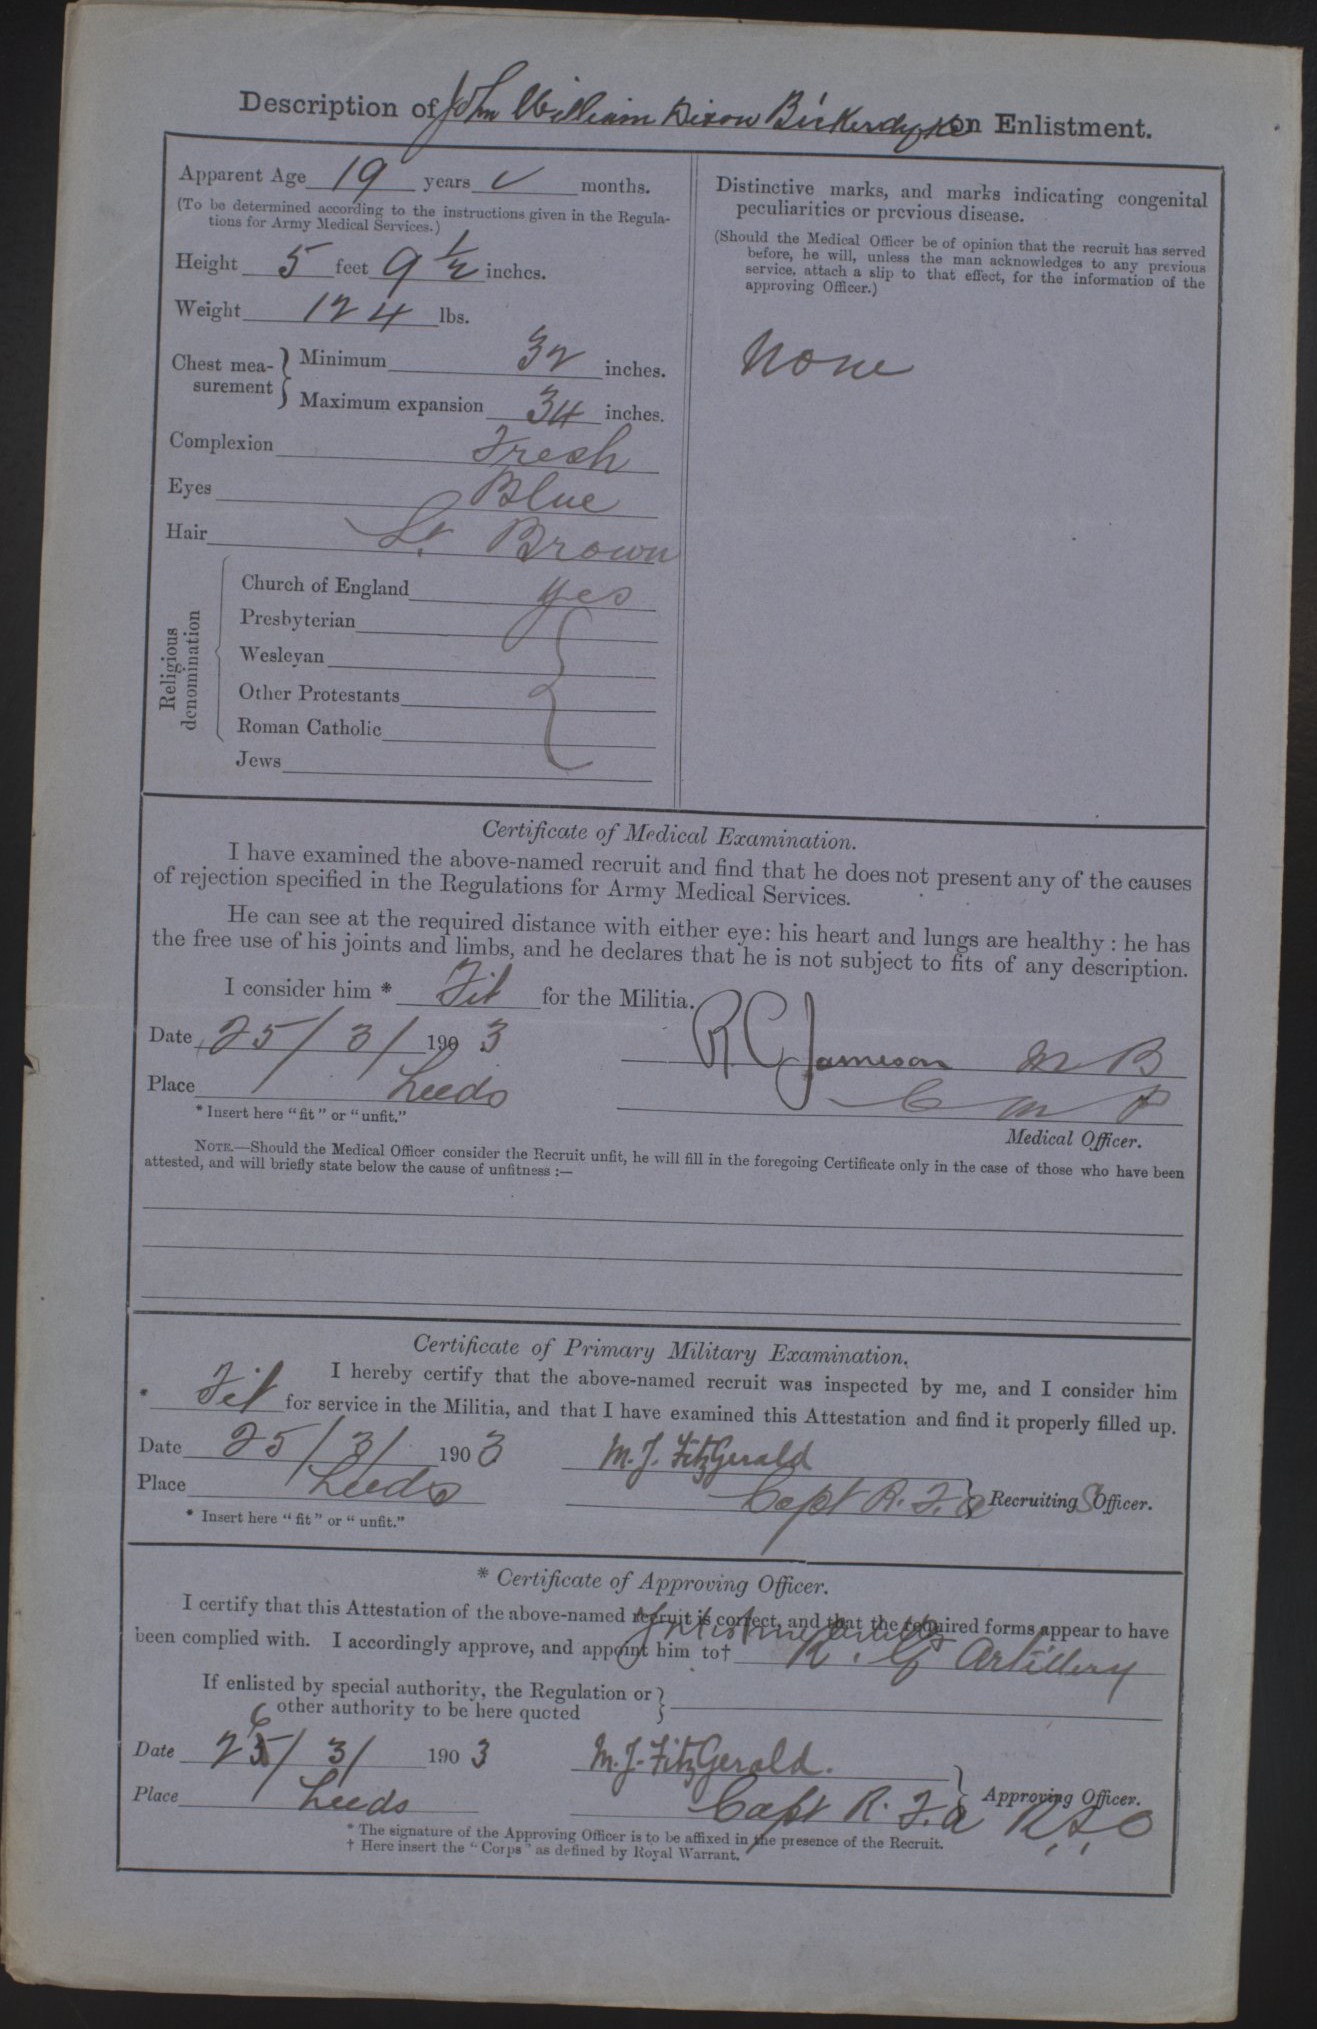 Description of John William Dixon Bickerdyke on Enlistment.
Apparent Age 19 years ✓ months.
(To be determined according to the instructions given in the Regula-
tions for Army Medical Services.)
Height 5 feet 9 1/2 inches.
Weight 124 lbs.
Chest mea-
surement
Minimum 32 inches.
Maximum expansion 34 inches.
Complexion Fresh
Eyes Blue
Hair Lt Brown
Religious
denomination
Church of England yes
Presbyterian
Wesleyan
Other Protestants
Roman Catholic
Jews
Distinctive marks, and marks indicating congenital
peculiarities or previous disease.
(Should the Medical Officer be of opinion that the recruit has served
before, he will, unless the man acknowledges to any previous
service, attach a slip to that effect, for the information of the
approving Officer.)
None
Certificate of Medical Examination.
I have examined the above-named recruit and find that he does not present any of the causes
of rejection specified in the Regulations for Army Medical Services.
He can see at the required distance with either eye: his heart and lungs are healthy: he has
the free use of his joints and limbs, and he declares that he is not subject to fits of any description.
I consider him * Fit for the Militia.
Date 25/3/1903 R C Jameson M B
Place Leeds C M P
* Insert here "fit" or "unfit."
Medical Officer.
NOTE.—Should the Medical Officer consider the Recruit unfit, he will fill in the foregoing Certificate only in the case of those who have been
attested, and will briefly state below the cause of unfitness :—
Certificate of Primary Military Examination.
I hereby certify that the above-named recruit was inspected by me, and I consider him
* Fit for service in the Militia, and that I have examined this Attestation and find it properly filled up.
Date 25/3/1903 M. J. FitzGerald
Place Leeds Capt R. F. a Recruiting S Officer.
* Insert here "fit" or "unfit."
* Certificate of Approving Officer.
I certify that this Attestation of the above-named recruit is correct, and that the required forms appear to have
been complied with. I accordingly approve, and appoint him to† R. G Artillery
If enlisted by special authority, the Regulation or
other authority to be here quoted
Date 26/3/1903 M. J. FitzGerald.
Place Leeds Capt R. F. a Approving Officer.
* The signature of the Approving Officer is to be affixed in the presence of the Recruit.
† Here insert the "Corps" as defined by Royal Warrant.